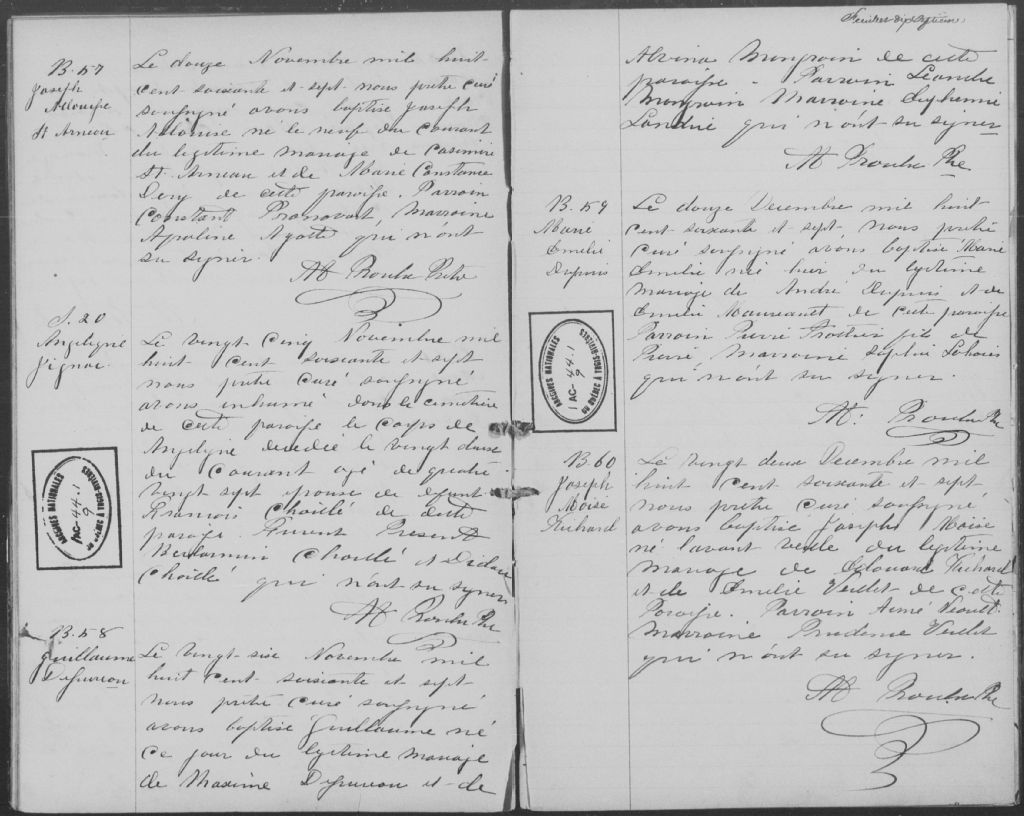 B. 57
Joseph
Alouise
St Arneau
Le douze Novembre mil huit
cent soixante et sept nous prêtre curé
soufsigné avons baptisé Joseph
Alouise né le neuf du courant
du legitime mariage de Casimire
St. Arneau et de Marie Constance
Dery de cette paroisse. Parrain
Constant Pronovost, Marraine
Apoline Ayotte qui n'ont
su signer.
Ptre
S. 20
Angeligne
Gignac
Le vingt-cinq Novembre mil
huit cent soixante et sept
nous prêtre curé soussigné
avons inhumé dans le cimetière
de cette paroisse le corps de
Angeligne decedée le vingt deux
du courant agé de quatre
vingt sept epouse de defunt
Francois Chaillé de cette
paroisse. Furent Present
Benjammin Chaillé et
Chaillé qui n'ont su signer
Ptre
ARCHIVES NATIONALES
1 AC-44.1
9
DU QUÉBEC À TROIS-RIVIÈRES
B. 58
Guillaume
Desureau
Le vingt-six Novembre mil
huit cent soixante et sept
nous prêtre curé soussigné
avons baptisé Guillaume né
ce jour du legitime mariage
de Maxime Desureau et de
Feuillet dix-septième
Alvina Mongrain de cette
paroisse. Parrain Léandre
Mongrain Marraine Euphemie
Landrie qui n'ont su signer
Ptre
B. 59
Marie
Emelie
Dupuis
Le douze Decembre mil huit
cent soixante et sept nous prêtre
curé soussigné avons baptisé Marie
Emelie née hier du legitime
mariage de André Dupuis et de
Emelie de cette paroisse
Parrain Pierre Trottier fils de
Pierre Marraine Sophie
qui n'ont su signer.
Ptre
ARCHIVES NATIONALES
1 AC-44.1
9
DU QUÉBEC À TROIS-RIVIÈRES
B. 60
Joseph
Moise
Le vingt deux Decembre mil
huit cent soixante et sept
nous prêtre curé soussigné
avons baptisé Joseph Moise
né l'avant veille du legitime
mariage de Edouard
et de Emelie Veillet de cette
Paroisse. Parrain Aimé
Marraine Prudence Veillet
qui n'ont su signer.
Ptre